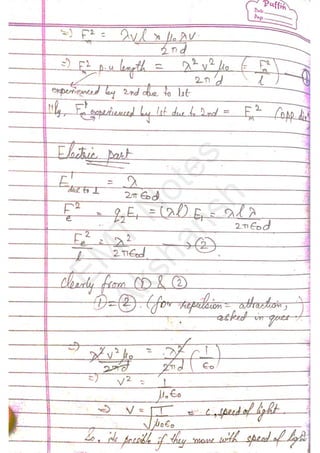 Puffin
Date
Page
=) F_m^2 = λvl × μ₀λv
2πd
=) F_m^2 p.u length = λ²v²μ₀ ( = F_m^2 ) ①
2πd l
experienced by 2nd due to 1st
lly, F_m^1 experienced by 1st due to 2nd = F_m^2 (opp. dir
Electric part
E^1 due to 1 = λ
2πε₀d
F_e^2 = q₂E₁ = (λl) E₁ = λlλ
2πε₀d
F_e^2 = λ² → ②
l 2πε₀d
clearly from ① & ②
① = ② (for repulsion = attraction,
asked in ques.)
=) λ²v²μ₀ = λ² ( 1 )
2πd 2πd ( ε₀ )
=) v² = 1
μ₀ε₀
=) v = √1 = c, speed of light.
√μ₀ε₀
So, its possible if they move with speed of light
EMT Notes